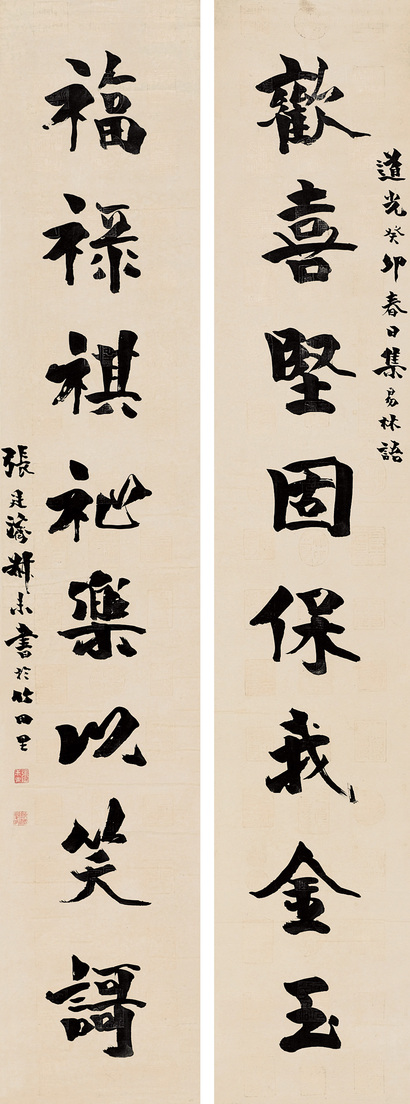 道光癸卯春日集易林語
歡喜堅固保我金玉
福祿祺祉樂以笑謌
張廷濟叔未書於竹田里